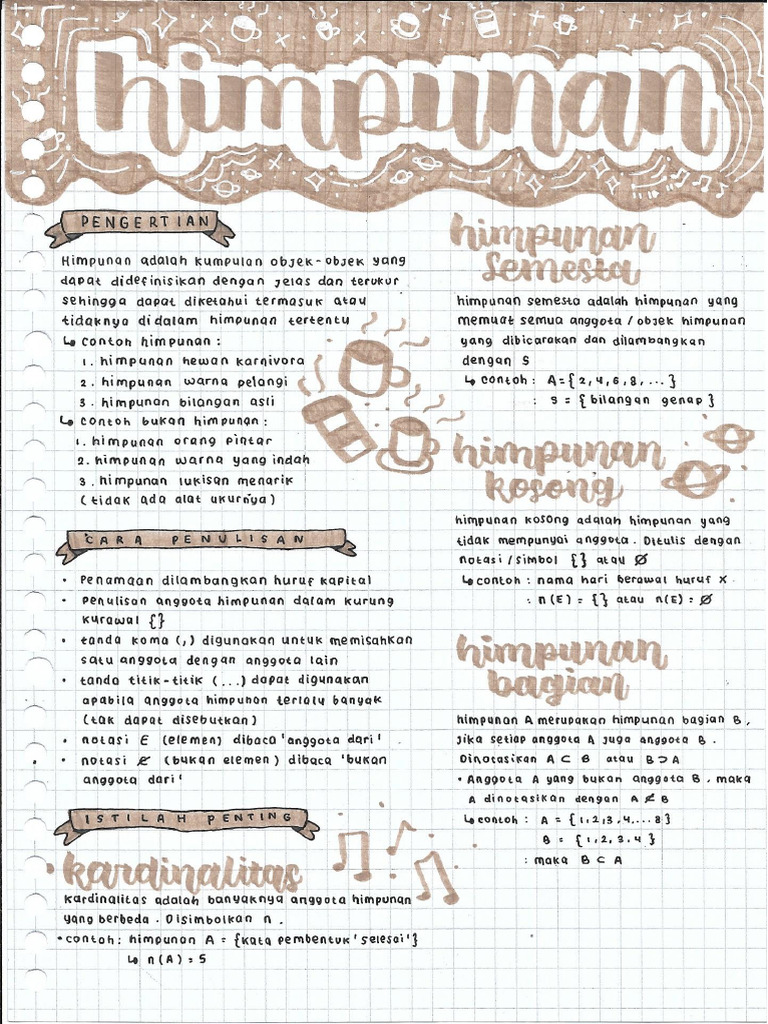 himpunan
PENGERTIAN
Himpunan adalah kumpulan objek-objek yang
dapat didefinisikan dengan jelas dan terukur
sehingga dapat diketahui termasuk atau
tidaknya didalam himpunan tertentu
↳ contoh himpunan :
1. himpunan hewan karnivora
2. himpunan warna pelangi
3. himpunan bilangan asli
↳ contoh bukan himpunan :
1. himpunan orang pintar
2. himpunan warna yang indah
3. himpunan lukisan menarik
(tidak ada alat ukurnya)
CARA PENULISAN
• Penamaan dilambangkan huruf kapital
• Penulisan anggota himpunan dalam kurung
kurawal {}
• tanda koma (,) digunakan untuk memisahkan
satu anggota dengan anggota lain
• tanda titik-titik (...) dapat digunakan
apabila anggota himpunan terlalu banyak
(tak dapat disebutkan)
• notasi ∈ (elemen) dibaca 'anggota dari'
• notasi ∉ (bukan elemen) dibaca 'bukan
anggota dari'
ISTILAH PENTING
kardinalitas
kardinalitas adalah banyaknya anggota himpunan
yang berbeda. Disimbolkan n.
• contoh: himpunan A = {kata pembentuk 'selesai'}
↳ n(A) = 5
himpunan
semesta
himpunan semesta adalah himpunan yang
memuat semua anggota / objek himpunan
yang dibicarakan dan dilambangkan
dengan S
↳ contoh : A = {2, 4, 6, 8, ...}
: S = {bilangan genap}
himpunan
kosong
himpunan kosong adalah himpunan yang
tidak mempunyai anggota. Ditulis dengan
notasi / simbol {} atau Ø
↳ contoh : nama hari berawal huruf x
: n(E) = {} atau n(E) = Ø
himpunan
bagian
himpunan A merupakan himpunan bagian B,
jika setiap anggota A juga anggota B.
Dinotasikan A ⊂ B atau B ⊃ A
• Anggota A yang bukan anggota B, maka
A dinotasikan dengan A ⊄ B
↳ contoh : A = {1, 2, 3, 4, ... 8}
B = {1, 2, 3, 4}
: maka B ⊂ A